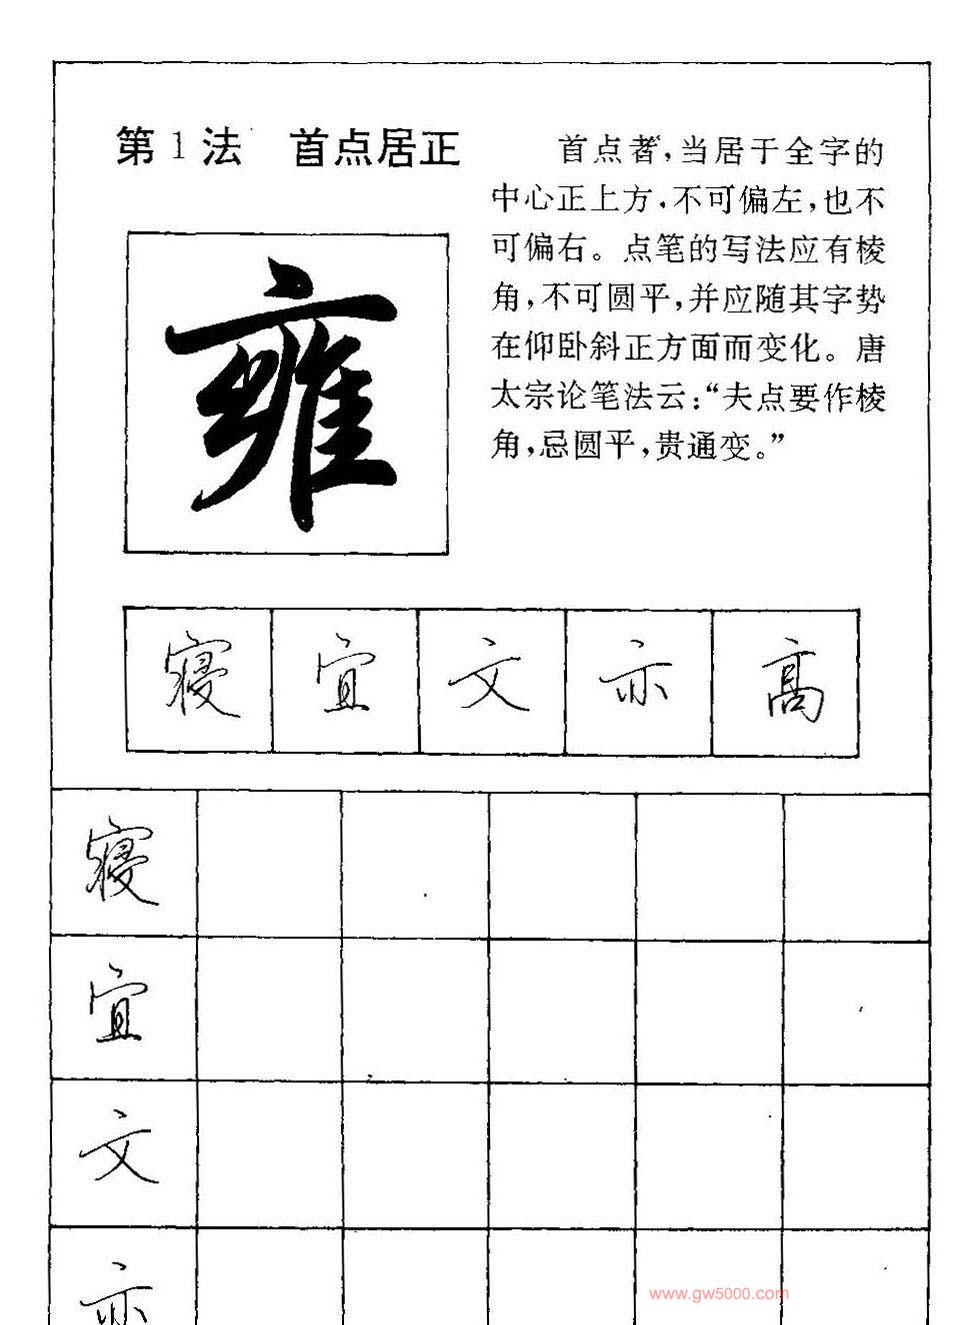 第1法 首点居正
首点者,当居于全字的
中心正上方,不可偏左,也不
可偏右。点笔的写法应有棱
角,不可圆平,并应随其字势
在仰卧斜正方面而变化。唐
太宗论笔法云:“夫点要作棱
角,忌圆平,贵通变。”
雍
寝 宜 文 亦 高
寝
宜
文
亦
www.gw5000.com